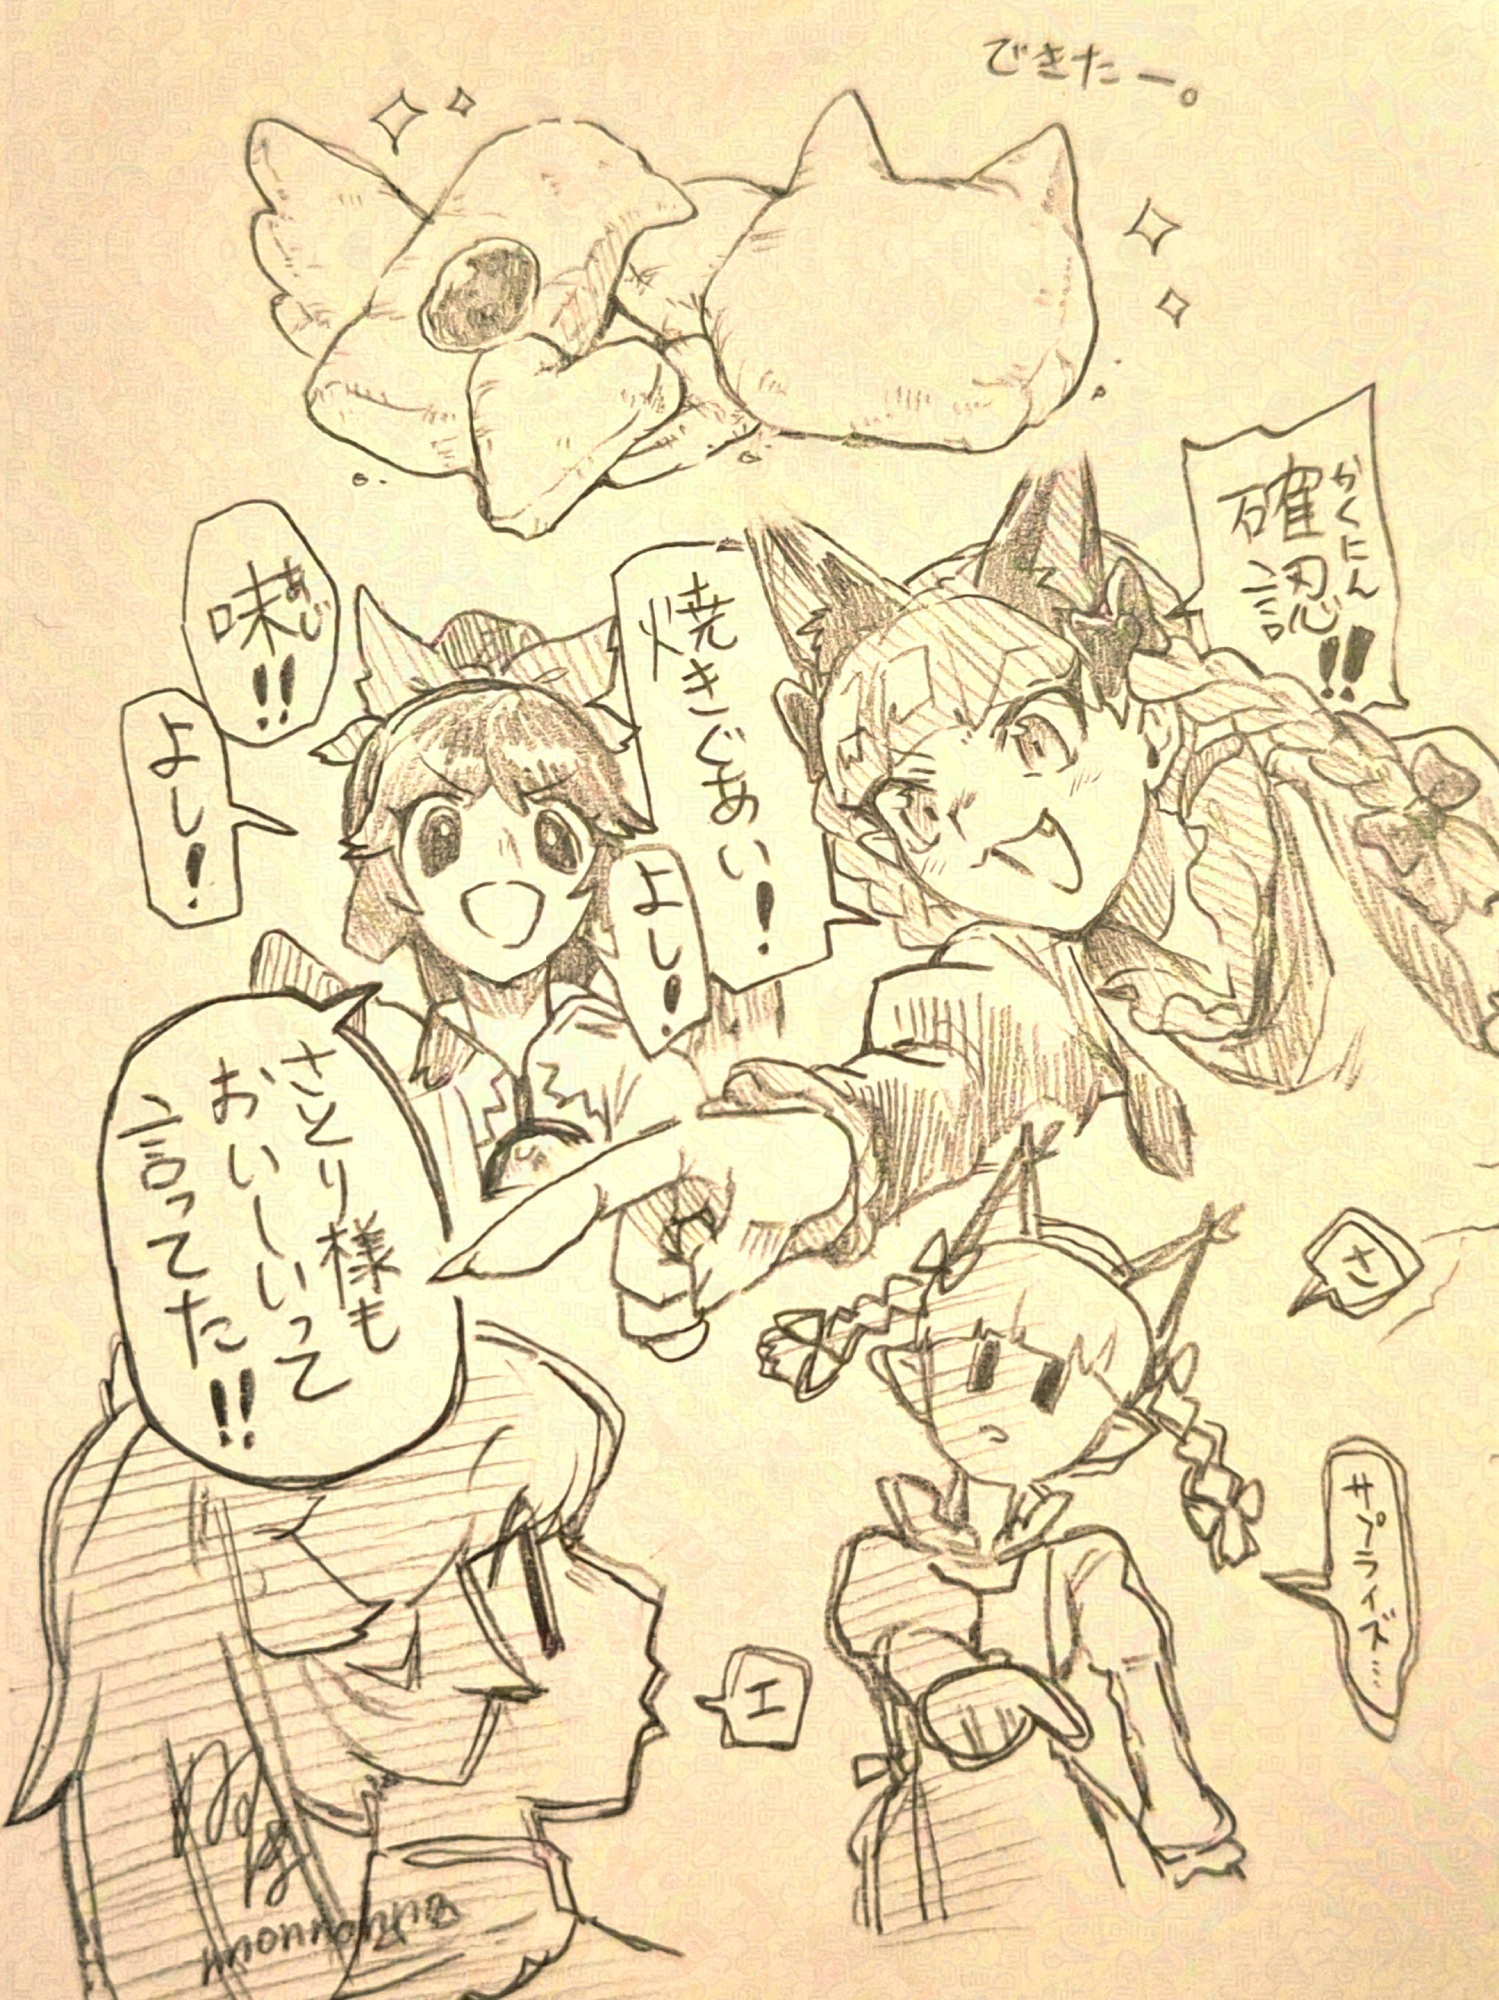 できたー。
確認!!
かくにん
焼きぐあい!
よし!
味!!
あじ
よし!
さとり様も
おいしいって
言ってた!!
エ
さ
サプライズ…
monnonna